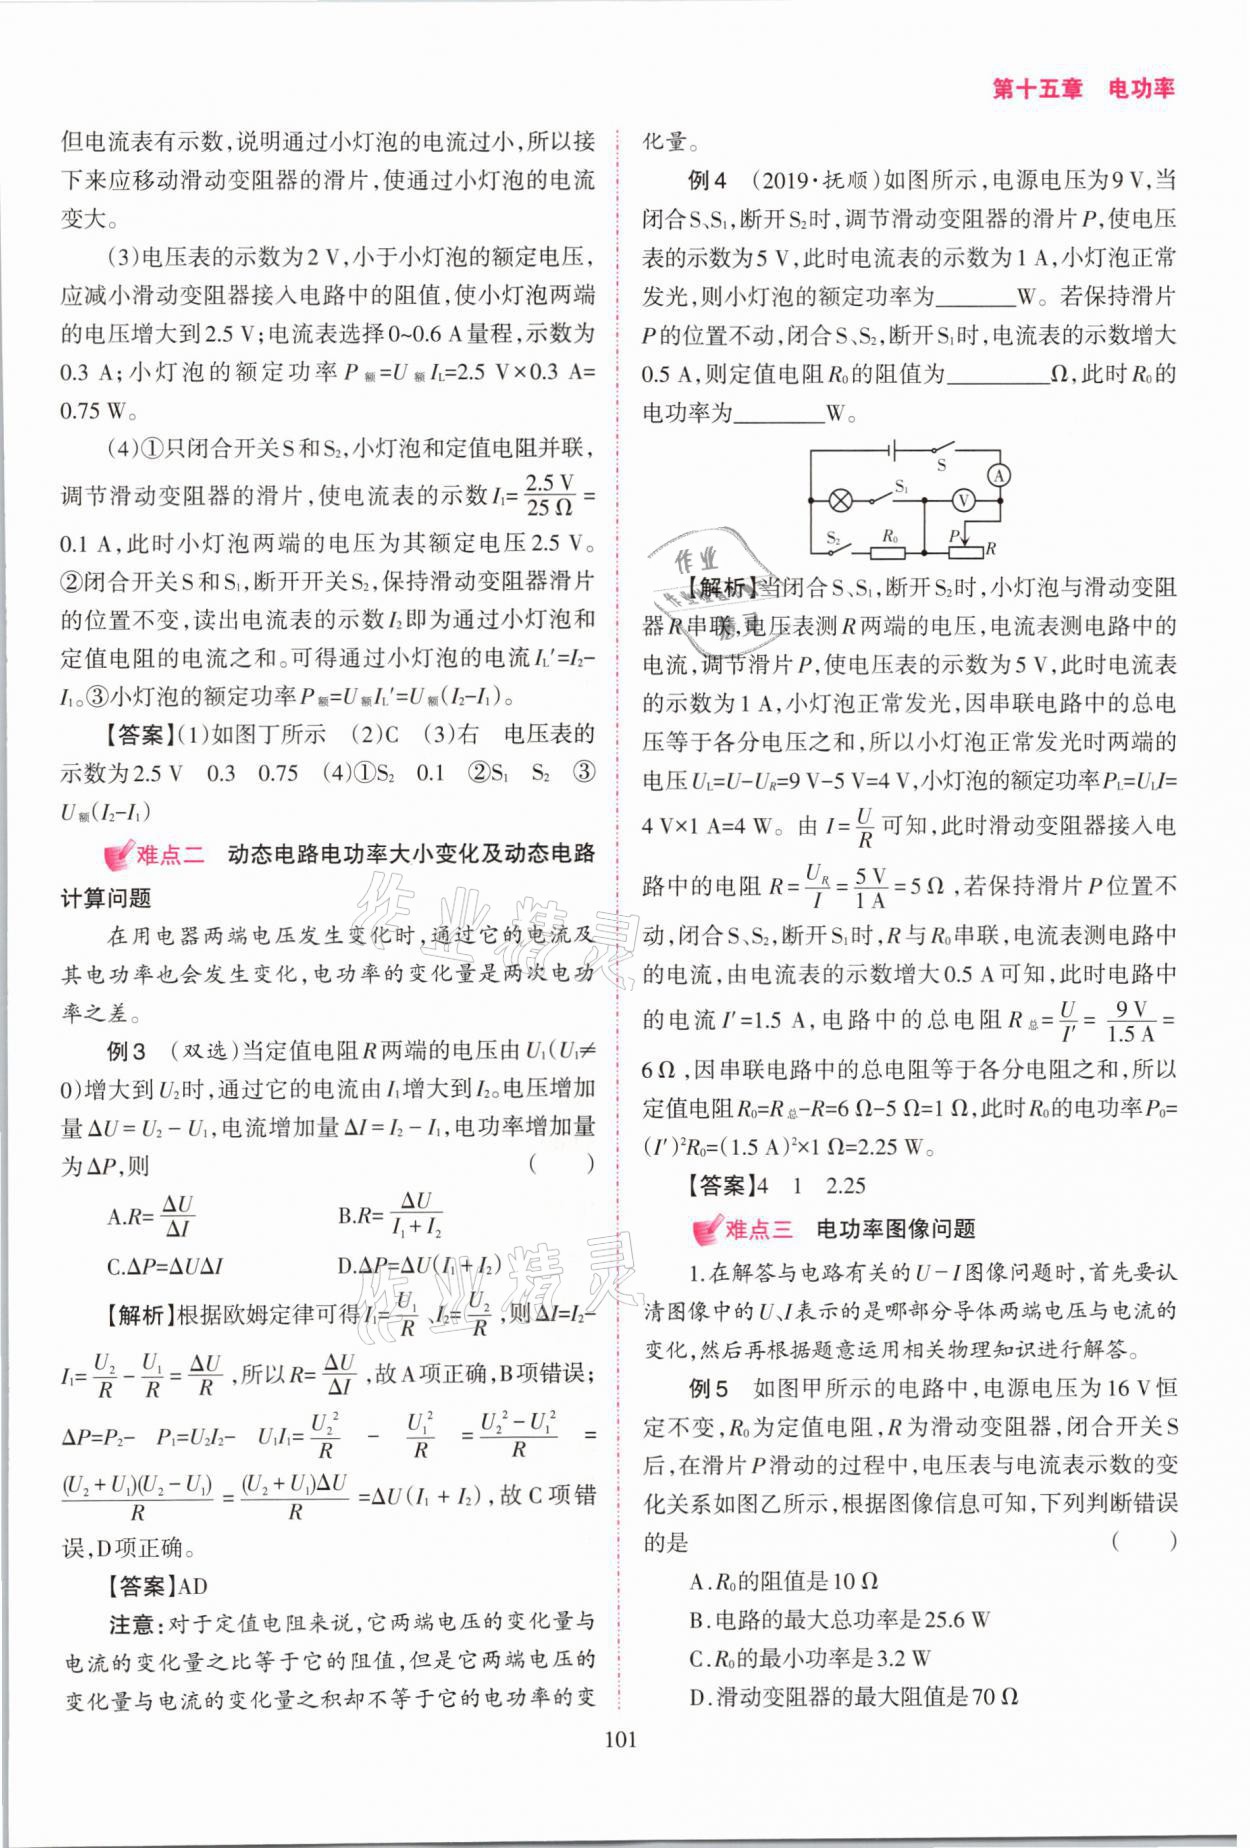 第十五章　电功率
但电流表有示数,说明通过小灯泡的电流过小,所以接
下来应移动滑动变阻器的滑片,使通过小灯泡的电流
变大。
(3)电压表的示数为2 V,小于小灯泡的额定电压,
应减小滑动变阻器接入电路中的阻值,使小灯泡两端
的电压增大到2.5 V;电流表选择0~0.6 A量程,示数为
0.3 A;小灯泡的额定功率P额=U额IL=2.5 V×0.3 A=
0.75 W。
(4)①只闭合开关S和S₂,小灯泡和定值电阻并联,
调节滑动变阻器的滑片,使电流表的示数I₁=2.5 V/25 Ω=
0.1 A,此时小灯泡两端的电压为其额定电压2.5 V。
②闭合开关S和S₁,断开开关S₂,保持滑动变阻器滑片
的位置不变,读出电流表的示数I₂即为通过小灯泡和
定值电阻的电流之和。可得通过小灯泡的电流IL′=I₂-
I₁。③小灯泡的额定功率P额=U额IL′=U额(I₂-I₁)。
【答案】(1)如图丁所示　(2)C　(3)右　电压表的
示数为2.5 V　0.3　0.75　(4)①S₂　0.1　②S₁　S₂　③
U额(I₂-I₁)
难点二　动态电路电功率大小变化及动态电路
计算问题
在用电器两端电压发生变化时,通过它的电流及
其电功率也会发生变化,电功率的变化量是两次电功
率之差。
例3　(双选)当定值电阻R两端的电压由U₁(U₁≠
0)增大到U₂时,通过它的电流由I₁增大到I₂。电压增加
量ΔU=U₂-U₁,电流增加量ΔI=I₂-I₁,电功率增加量
为ΔP,则　(　　)
A.R=ΔU/ΔI　B.R=ΔU/(I₁+I₂)
C.ΔP=ΔUΔI　D.ΔP=ΔU(I₁+I₂)
【解析】根据欧姆定律可得I₁=U₁/R、I₂=U₂/R,则ΔI=I₂-
I₁=U₂/R-U₁/R=ΔU/R,所以R=ΔU/ΔI,故A项正确,B项错误;
ΔP=P₂-P₁=U₂I₂-U₁I₁=U₂²/R-U₁²/R=(U₂²-U₁²)/R=
(U₂+U₁)(U₂-U₁)/R=(U₂+U₁)ΔU/R=ΔU(I₁+I₂),故C项错
误,D项正确。
【答案】AD
注意:对于定值电阻来说,它两端电压的变化量与
电流的变化量之比等于它的阻值,但是它两端电压的
变化量与电流的变化量之积却不等于它的电功率的变
化量。
例4　(2019·抚顺)如图所示,电源电压为9 V,当
闭合S、S₁,断开S₂时,调节滑动变阻器的滑片P,使电压
表的示数为5 V,此时电流表的示数为1 A,小灯泡正常
发光,则小灯泡的额定功率为______W。若保持滑片
P的位置不动,闭合S、S₂,断开S₁时,电流表的示数增大
0.5 A,则定值电阻R₀的阻值为________Ω,此时R₀的
电功率为_______W。
S
A
S₁
V
S₂
R₀
P
R
【解析】当闭合S、S₁,断开S₂时,小灯泡与滑动变阻
器R串联,电压表测R两端的电压,电流表测电路中的
电流,调节滑片P,使电压表的示数为5 V,此时电流表
的示数为1 A,小灯泡正常发光,因串联电路中的总电
压等于各分电压之和,所以小灯泡正常发光时两端的
电压UL=U-UR=9 V-5 V=4 V,小灯泡的额定功率PL=ULI=
4 V×1 A=4 W。由I=U/R可知,此时滑动变阻器接入电
路中的电阻R=UR/I=5 V/1 A=5 Ω,若保持滑片P位置不
动,闭合S、S₂,断开S₁时,R与R₀串联,电流表测电路中
的电流,由电流表的示数增大0.5 A可知,此时电路中
的电流I′=1.5 A,电路中的总电阻R总=U/I′=9 V/1.5 A=
6 Ω,因串联电路中的总电阻等于各分电阻之和,所以
定值电阻R₀=R总-R=6 Ω-5 Ω=1 Ω,此时R₀的电功率P₀=
(I′)²R₀=(1.5 A)²×1 Ω=2.25 W。
【答案】4　1　2.25
难点三　电功率图像问题
1.在解答与电路有关的U-I图像问题时,首先要认
清图像中的U、I表示的是哪部分导体两端电压与电流的
变化,然后再根据题意运用相关物理知识进行解答。
例5　如图甲所示的电路中,电源电压为16 V恒
定不变,R₀为定值电阻,R为滑动变阻器,闭合开关S
后,在滑片P滑动的过程中,电压表与电流表示数的变
化关系如图乙所示,根据图像信息可知,下列判断错误
的是　(　　)
A.R₀的阻值是10 Ω
B.电路的最大总功率是25.6 W
C.R₀的最小功率是3.2 W
D.滑动变阻器的最大阻值是70 Ω
101
作业精灵
作业精灵